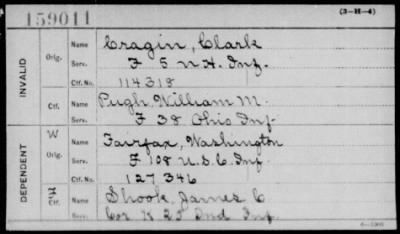 159011
(3-H-4)
INVALID
Orig. Name Cragin, Clark
Serv. F 5 N.H. Inf.
Ctf. No. 114318
Ctf. Name Pugh, William M.
Serv. F 38 Ohio Inf.
DEPENDENT
W Orig. Name Fairfax, Washington
Serv. F 108 U.S.C. Inf.
Ctf. No. 127346
Ctf. Name Shook, James C
Serv. Cor K 25 Ind Inf.